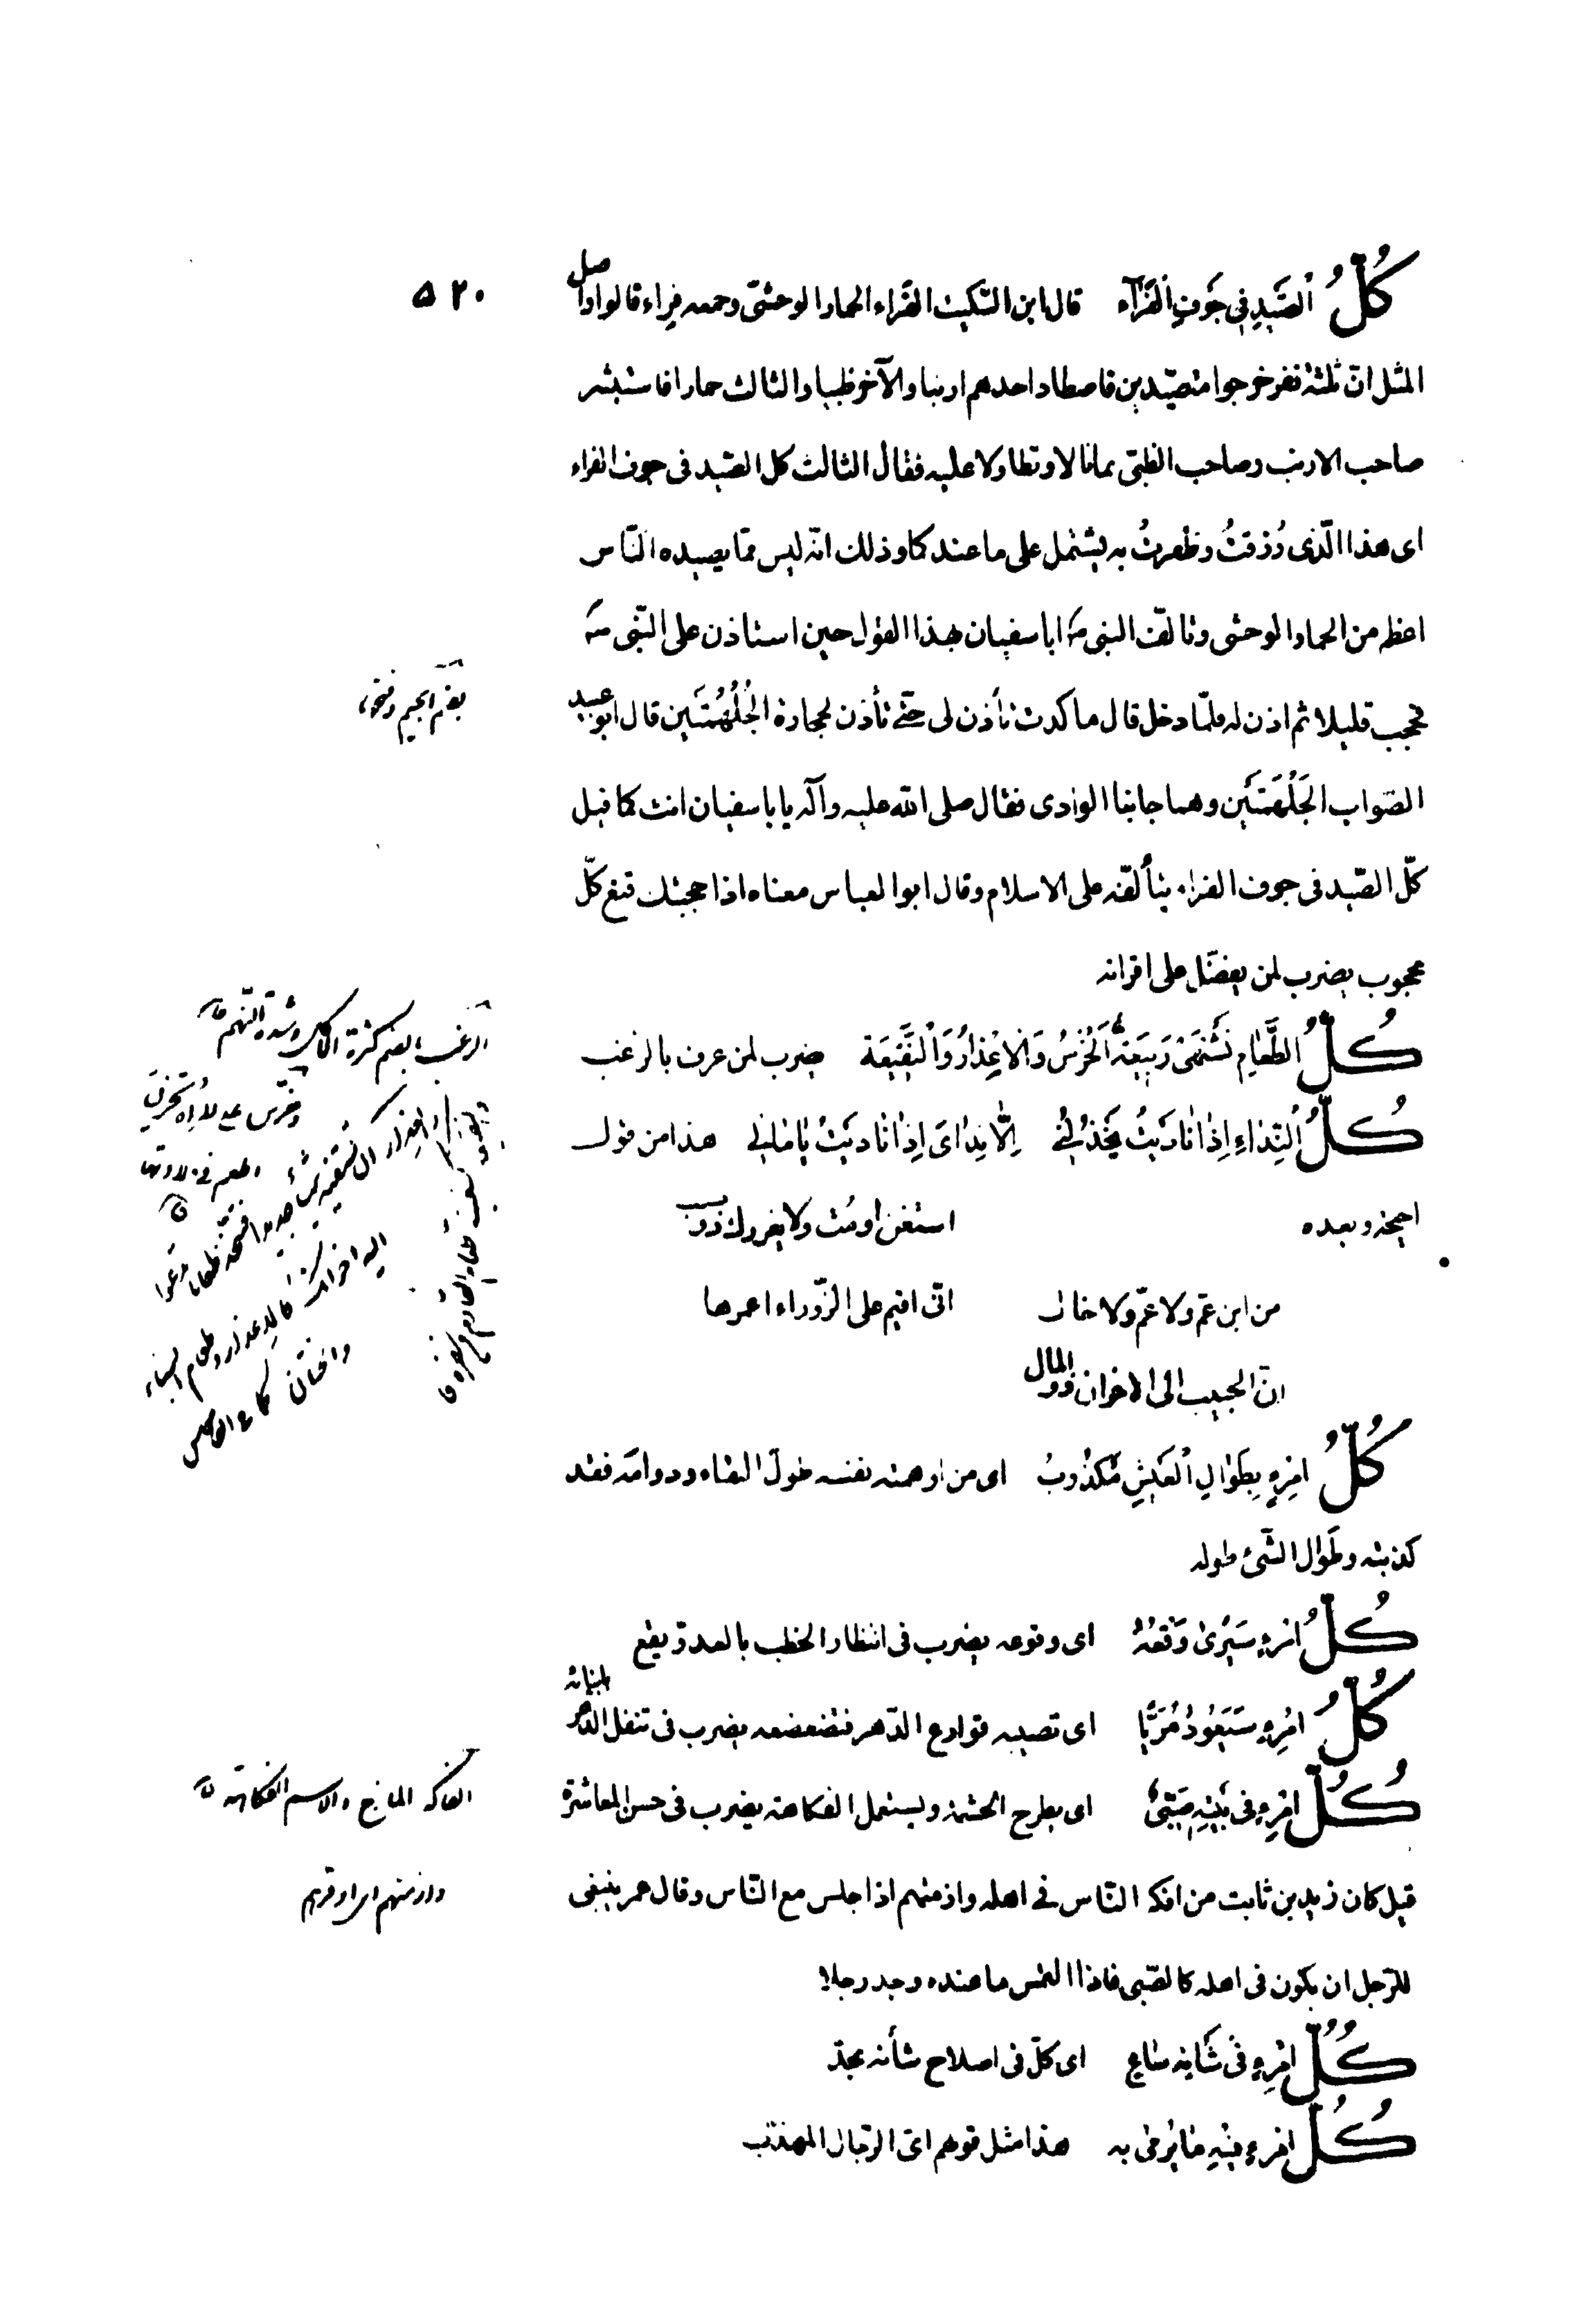 ۵۲۰
كُلُّ الصَّيْدِ فِي جَوْفِ الْفَرَاءِ قال ابن السّكيت الفَراء الحمار الوحشىّ وجمعه فِراء قالوا واصل
المثل انّ ثلثة نفر خرجوا متصيّدين فاصطاد احدهم ارنبا والآخر ظبيا والثالث حمارا فاستبشر
صاحب الارنب وصاحب الظبى بما نالا وتطاولا عليه فقال الثالث كل الصّيد فى جوف الفراء
اى هذا الّذى رُزقتُ وظفرتُ به يشتمل على ما عندكما وذلك انّه ليس ممّا يصيده النّاس
اعظم من الحمار الوحشى وتالّف النبى ص ابا سفيان بهذا القول حين استاذن على النّبى ص
فحجب قليلا ثم اذن له فلمّا دخل قال ما كدت تأذن لى حتّى تأذن لحجارة الجُلْهُمَتَين قال ابو عبيد
بضم الجيم وفتحها
الصّواب الجَلْهَمَتَين وهما جانبا الوادى فقال صلى الله عليه وآله يابا سفيان انت كما قيل
كلّ الصّيد فى جوف الفراء يتألّفه على الاسلام وقال ابو العباس معناه اذا حجبتك قنع كلّ
محجوب يضرب لمن يفضّل على اقرانه
كُلُّ الطَّعَامِ تَشْتَهِى رَبِيعَةُ الْخُرْسُ وَالْاِعْذَارُ وَالنَّقِيعَة يضرب لمن عرف بالرغب
الرغب بالضم كثرة الاكل وشدة النّهم ق
كُلُّ النِّدَاءِ اِذَا نَادَيْتُ يَخْذُلُنِى اِلَّا نِدَاىَ اِذَا نَادَيْتُ يَا مَالِى هذا من قول
احيحة وبعده استغن او مُت ولا يغررك ذو نسب
من ابن عمّ ولا عمّ ولا خال انّى اقيم على الزّوراء اعمرها
انّ الحبيب الى الاخوان ذو المال
كُلُّ امْرِءٍ بِطَوَالِ الْعَيْشِ مَكْذُوبُ اى من اوهمته نفسه طول البقاء ودوامه فقد
كذبته وطَوال الشّئ طوله
كُلُّ امْرِءٍ سَيَرَى وَقْعَهُ اى وقوعه يضرب فى انتظار الخطب بالعدوّ يقع
كُلُّ امْرِءٍ سَيَعُودُ مُرَيًّا اى تصيبه قوارع الدّهر فتضعضعه يضرب فى تنقل الدّهر بابنائه
كُلُّ امْرِءٍ فِى بَيْتِهِ صَبِىٌّ اى يطرح الحشمة ويستعمل الفكاهة يضرب فى حسن المعاشرة
الفاكه المازح والاسم الفكاهة ق
قيل كان زيد بن ثابت من افكه النّاس فى اهله وازمتهم اذا جلس مع النّاس وقال عمر ينبغى
وازمتهم اى اوقرهم
للرّجل ان يكون فى اهله كالصّبى فاذا التمس ما عنده وجد رجلا
كُلُّ امْرِءٍ فِى شَانِهِ سَاعٍ اى كلّ فى اصلاح شأنه مجدّ
كُلُّ امْرِءٍ فِيْهِ مَا يُرْمَى بِه هذا مثل قوهم اىّ الرّجال المهذّب